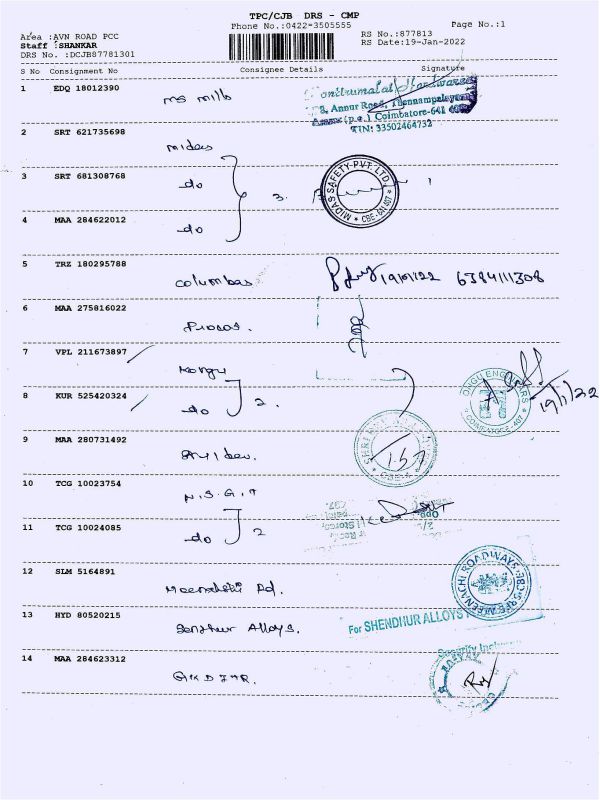 TPC/CJB DRS - CMP
Phone No.:0422-3505555
Page No.:1
Area :AVN ROAD PCC
RS No.:877813
Staff :SHANKAR
RS Date:19-Jan-2022
DRS No. :DCJB87781301
S No Consignment No Consignee Details Signature
1 EDQ 18012390
ms mills
Hardwares
8, Annur Road, Thennampalayam
(p.o.) Coimbatore-641 407
TIN: 33502464732
2 SRT 621735698
midas
3 SRT 681308768
do
3
MIDAS SAFETY PVT. LTD.
CBE-641 407
4 MAA 284622012
do
5 TRZ 180295788
columbas
19/01/22 6384111308
6 MAA 275816022
7 VPL 211673897
Kongu
8 KUR 525420324
do 2.
19/1/22
9 MAA 280731492
10 TCG 10023754
N.S.G.T
11 TCG 10024085
do 2
12 SLM 5164891
Meenakshi Rd.
MEENACHI ROADWAYS
13 HYD 80520215
Alloys.
For SHENDHUR ALLOYS
14 MAA 284623312
Security